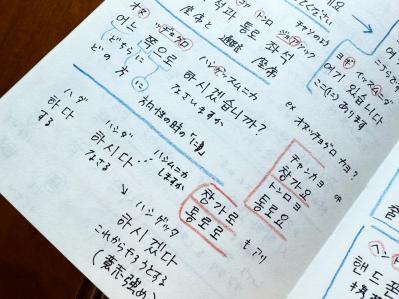 석다 통로 좌석
座席と 通路 座席
オヌ チョグロ
어느 쪽으로
どちらに
どの 方 に
ハシゲッスムニカ
하시겠습니까?
なさいますか
方向性の時の「に」
여기 있습니다
ここ(に)あります
ex オヌッチョグロ カヨ?
チャンカヨ
창가요 or
トンロヨ
통로요
ハダ
하다
する
ハシダ
하시다
なさる
ハシムニカ
しますか
창가로
통로로 もアリ
↓ ハシゲッタ
하시겠다
これからそうとする
(意示強め)
핸드폰